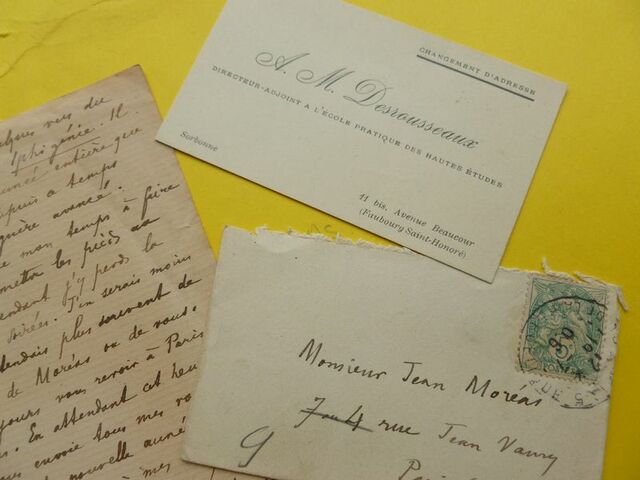 CHANGEMENT D'ADRESSE
A. M. Desrousseaux
DIRECTEUR-ADJOINT A L'ÉCOLE PRATIQUE DES HAUTES ÉTUDES
Sorbonne
11 bis, Avenue Beaucour
(Faubourg Saint-Honoré)
vers du
Iphigénie. Il
entière que
a temps
avancé.
mon temps à faire
les pieds au
j'y perds la
soirées. J'en serais moins
plus souvent de
de Moréas ou de vous.
vous revoir à Paris
. En attendant cet heu
envoie tous mes vo
nouvelle anné
à mes
Monsieur Jean Moréas
7 ou 4 rue Jean Vavry
9